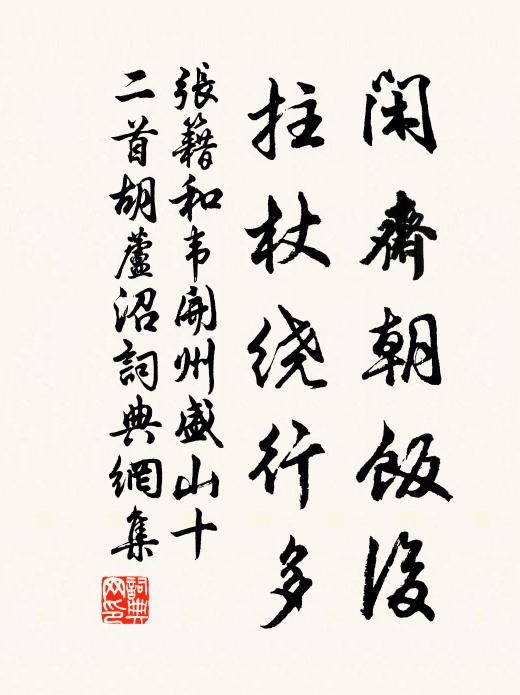 闲齋朝飯後
拄杖绕行多
張籍和韦開州盛山十
二首胡蘆沼詞典網集
詞典
网印